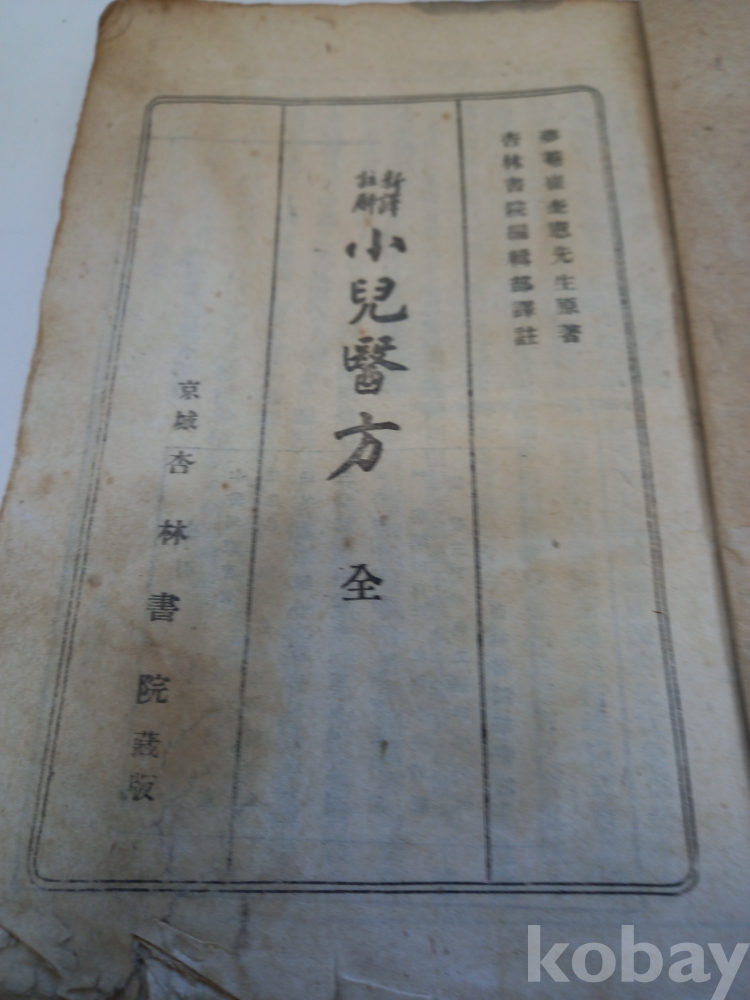 夢菴崔奎憲先生原著
杏林書院編輯部譯註
新譯
註解
小兒醫方 全
京城 杏林書院藏版
kobay